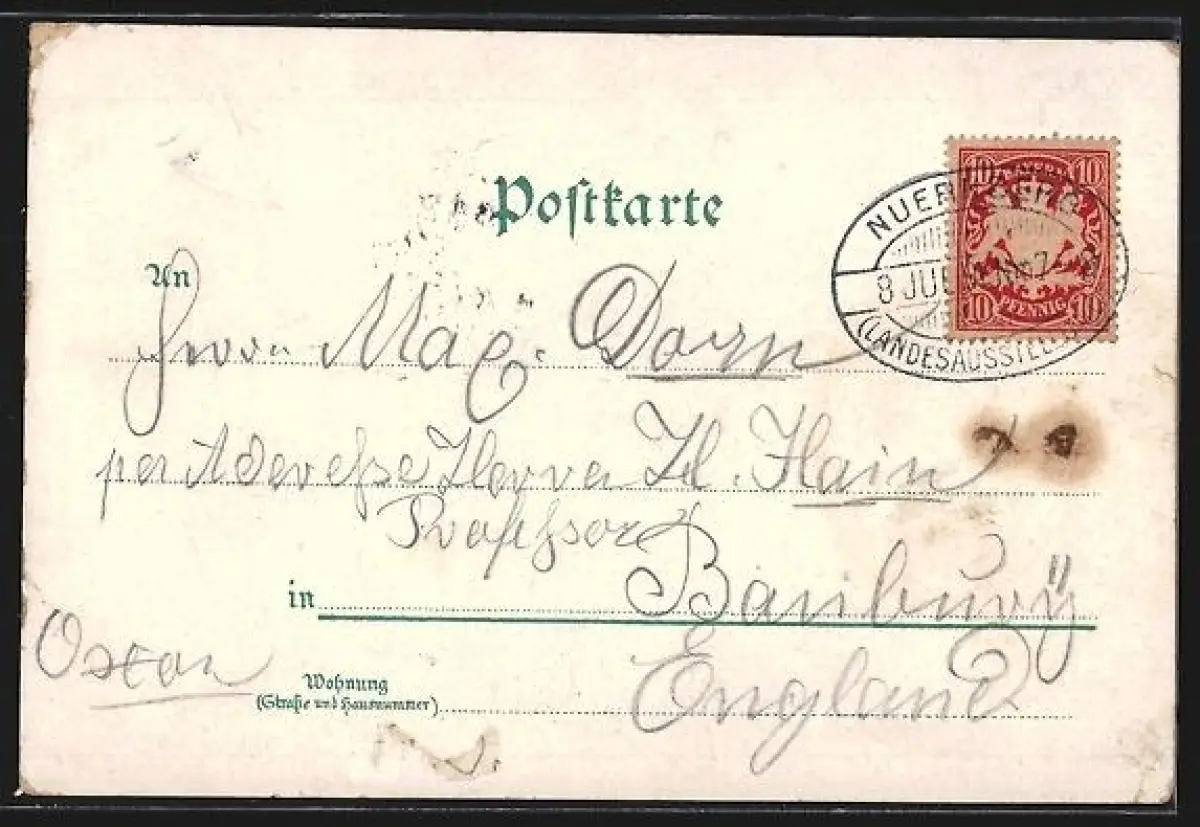 Postkarte
NUERNBERG
8 JUL
(LANDESAUSSTELL
10 BAYERN 10
10 PFENNIG 10
An
Herrn Max Dorn
per Adresse Herrn H. Hain
Professor
in Banbury
Oxon
England
Wohnung
(Straße und Hausnummer)